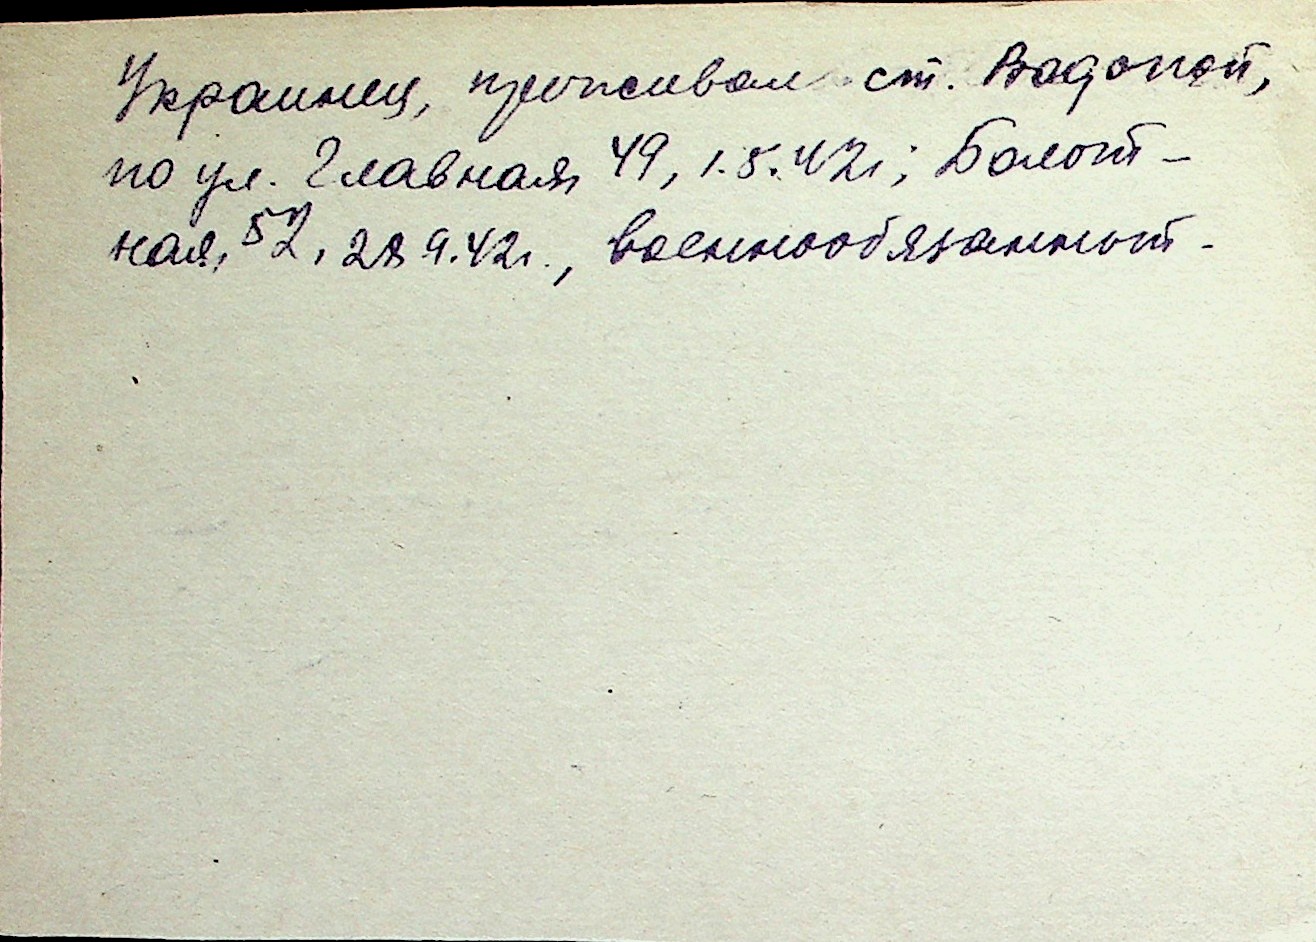 Украинец, проживал ст. Водопой,
по ул. Главная, 49, 1.5.42г; Болот-
ная, 52, 28 9.42г., военнообязанный.